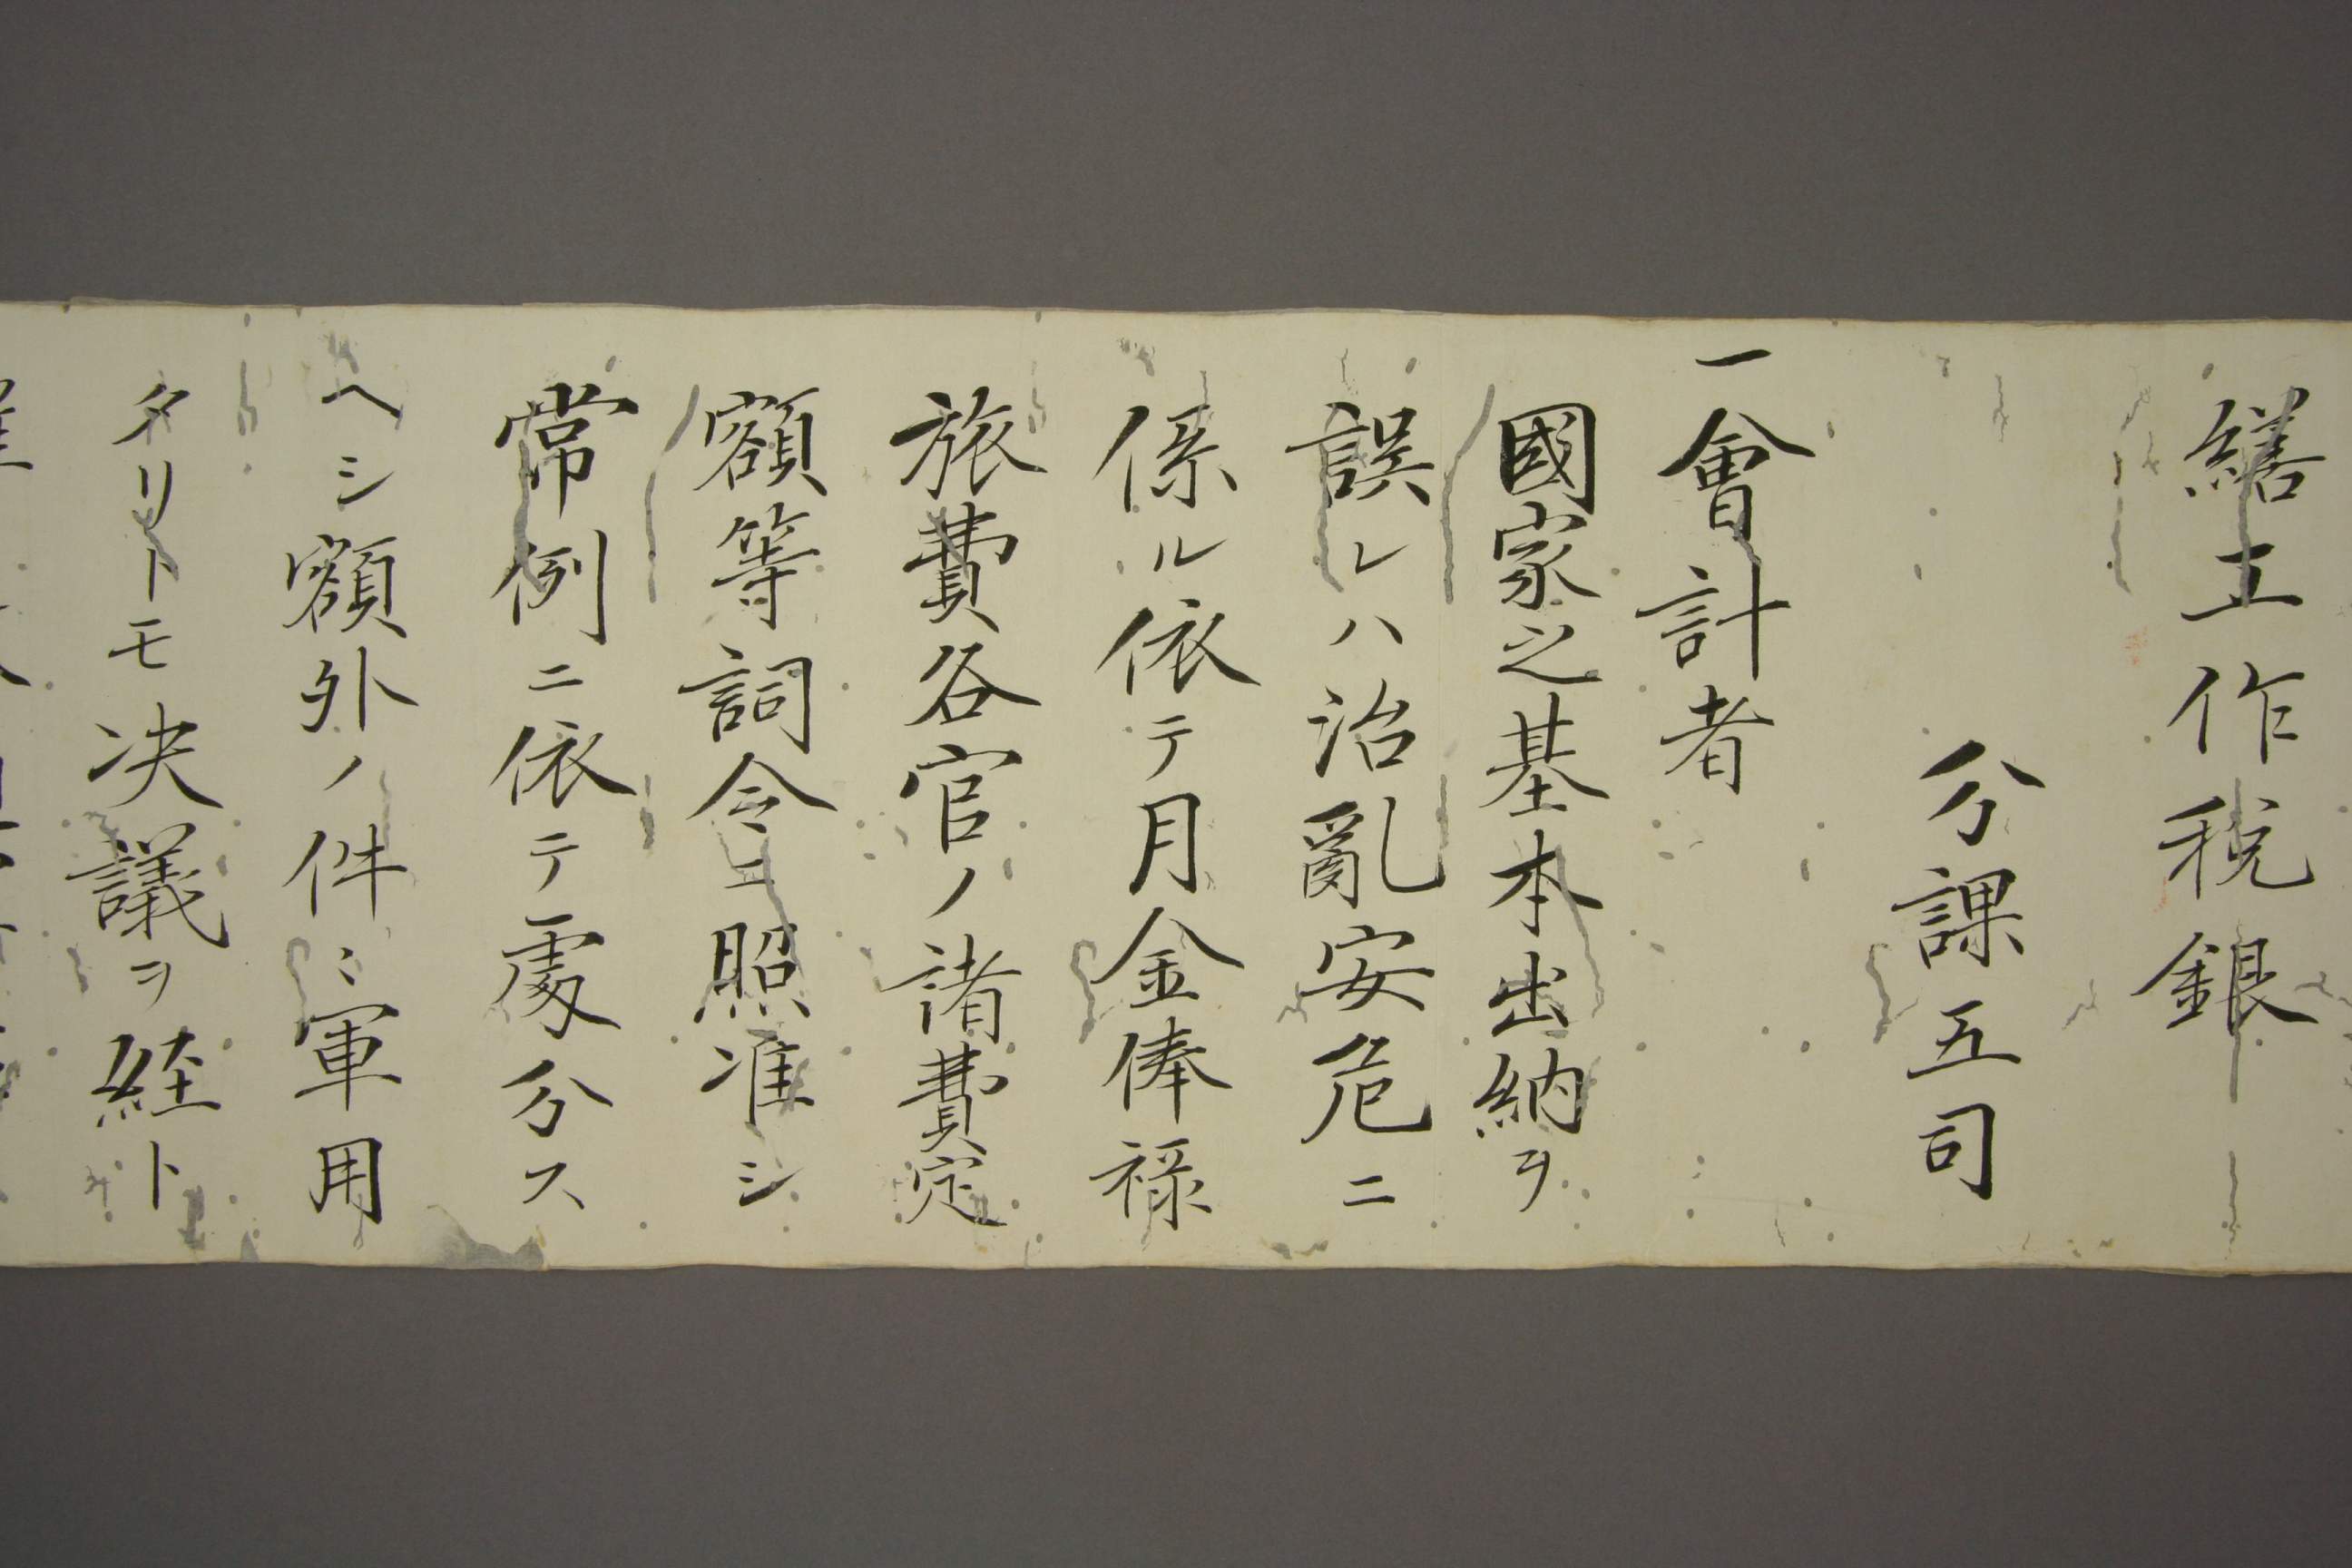 繕工作税銀
分課五司
一會計者
國家之基本出納ヲ
誤レハ治亂安危ニ
係ル依テ月金俸禄
旅費各官ノ諸費定
額等詞令ニ照准シ
常例ニ依テ處分ス
ヘシ額外ノ件ミ軍用
タリトモ决議ヲ経ト